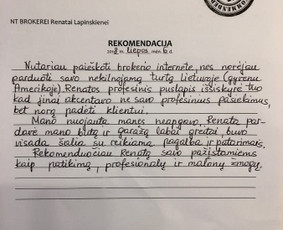 NT BROKEREI Renatai Lapinskienei
REKOMENDACIJA
liepos mėn. 6 d.
Nutariau paieškoti brokerio internete, nes norėjau
parduoti savo nekilnojamą turtą Lietuvoje (gyvenu
Amerikoje). Renatos profesinis puslapis išsiskyrė tuo
kad jinai akcentavo ne savo profesinius pasiekimus,
bet norą padėti klientui.
Mano nuojauta manęs neapgavo, Renata par-
davė mano butą ir garažą labai greitai, buvo
visada šalia su reikiama pagalba ir patarimais.
Rekomenduočiau Renatą savo pažįstamiems
kaip patikimą, profesionalų ir malonų žmogų.